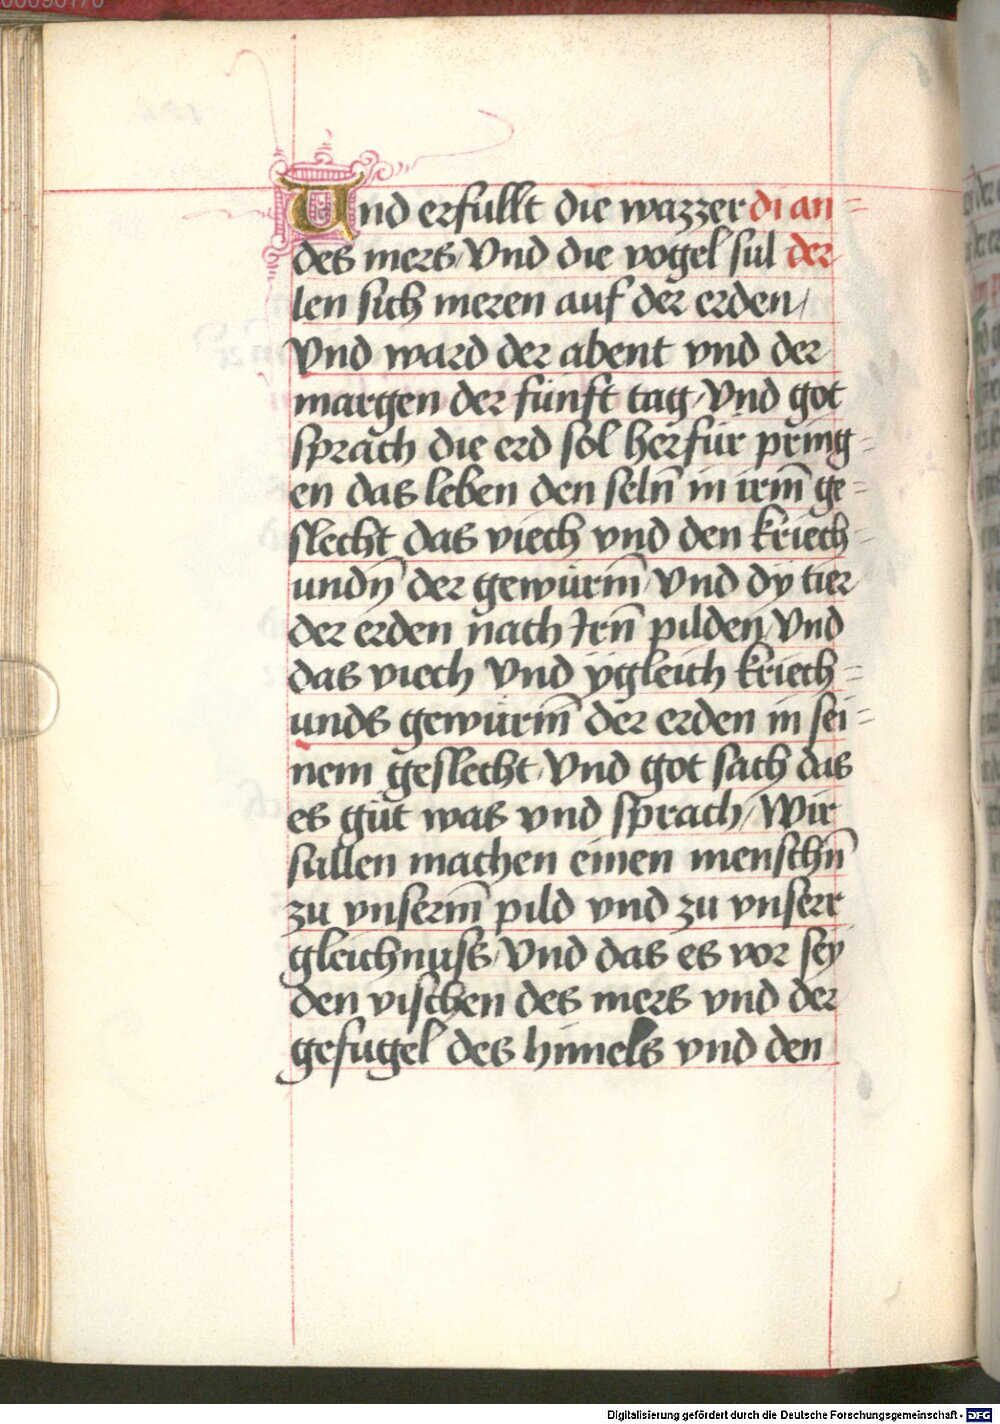 00090170
Und erfullt die wazzer di an=
des mers/ Vnd die vogel sul der
len sich meren auf der erden/
Vnd ward der abent vnd der
margen der fünft tag/ Vnd got
sprach die erd sol herfür pring=
en das leben den seln̄ in irm̄ ge=
slecht das viech vnd den kriech=
undn̄ der gewürm̄/ Vnd dÿ tier
der erden nach Irn̄ pilden/ Vnd
das viech Vnd ÿgleich kriech=
unds gewürm̄ der erden in sei=
nem geslecht/ Vnd got sach das
es gůt was vnd sprach/ Wir
sullen machen einen menschn̄
zu vnserm̄ pild vnd zu vnserr
gleichnuss/ Vnd das es vor sey
den vischen des mers vnd der
gefugel des himels vnd den
Digitalisierung gefördert durch die Deutsche Forschungsgemeinschaft - DFG